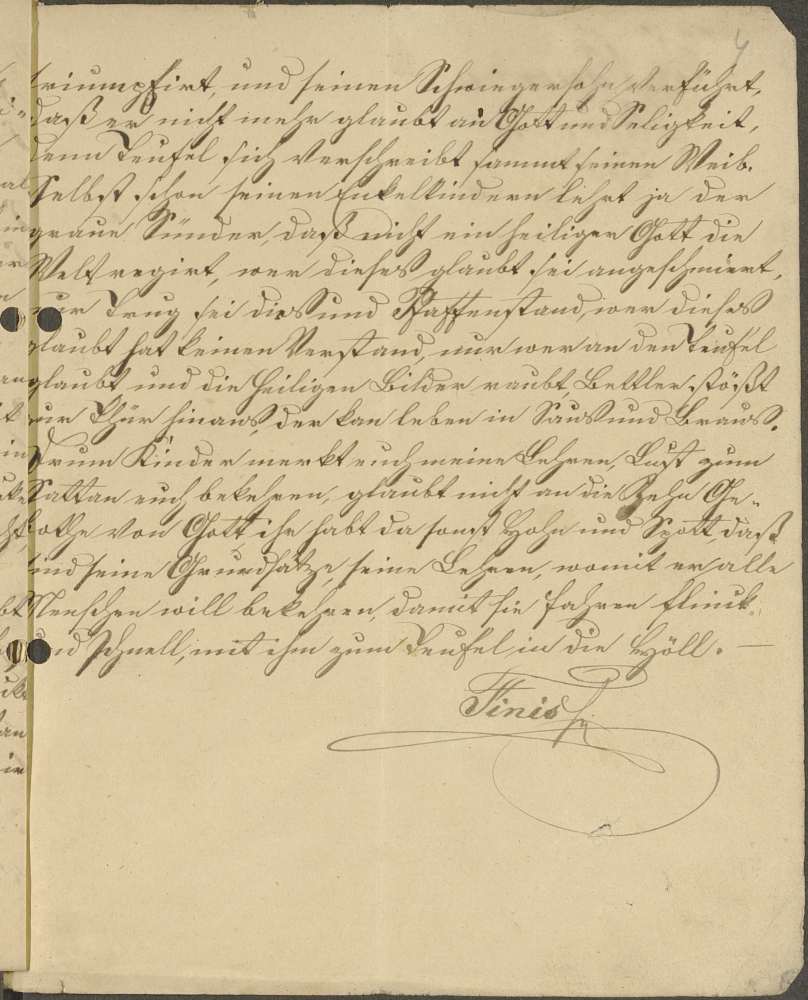 4
triumpfirt, und seinen Schwiegersohn verführt,
daß er nicht mehr glaubt an Gott und Seligkeit,
denn Teufel sich verschreibt sammt seinen Weib.
Selbst schon seinen Enkelkindern lehrt ja der
graue Sünder, daß nicht ein heiliger Gott die
Welt regirt, wer dieses glaubt sei angeschmiert,
nur Trug sei dies und Pfaffenstand, wer dieses
glaubt hat keinen Verstand, nur wer an den Teufel
glaubt und die heiligen Bilder raubt, Bettler stößt
zur Thür hinaus, der kan leben in Saus und Brauss.
Drum Kinder merkt euch meine Lehren, Lust zum
Sattan euch bekehren, glaubt nicht an die Zehn Ge-
bothe von Gott ihr habt da sonst Hohn und Spott daß
sind seine Grundsätze, seine Lehren, womit er alle
Menschen will bekehren, damit sie fahren flink
und schnell, mit ihm zum Teufel in die Höll. —
Finis